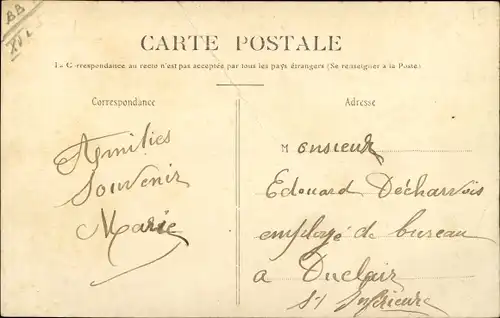 CARTE POSTALE
La Correspondance au recto n'est pas acceptée par tous les pays étrangers (Se renseigner à la Poste.)
Correspondance
Amitiés
Souvenir
Marie
Adresse
Monsieur
Edouard
employé de bureau
a Duclair
St Inférieure